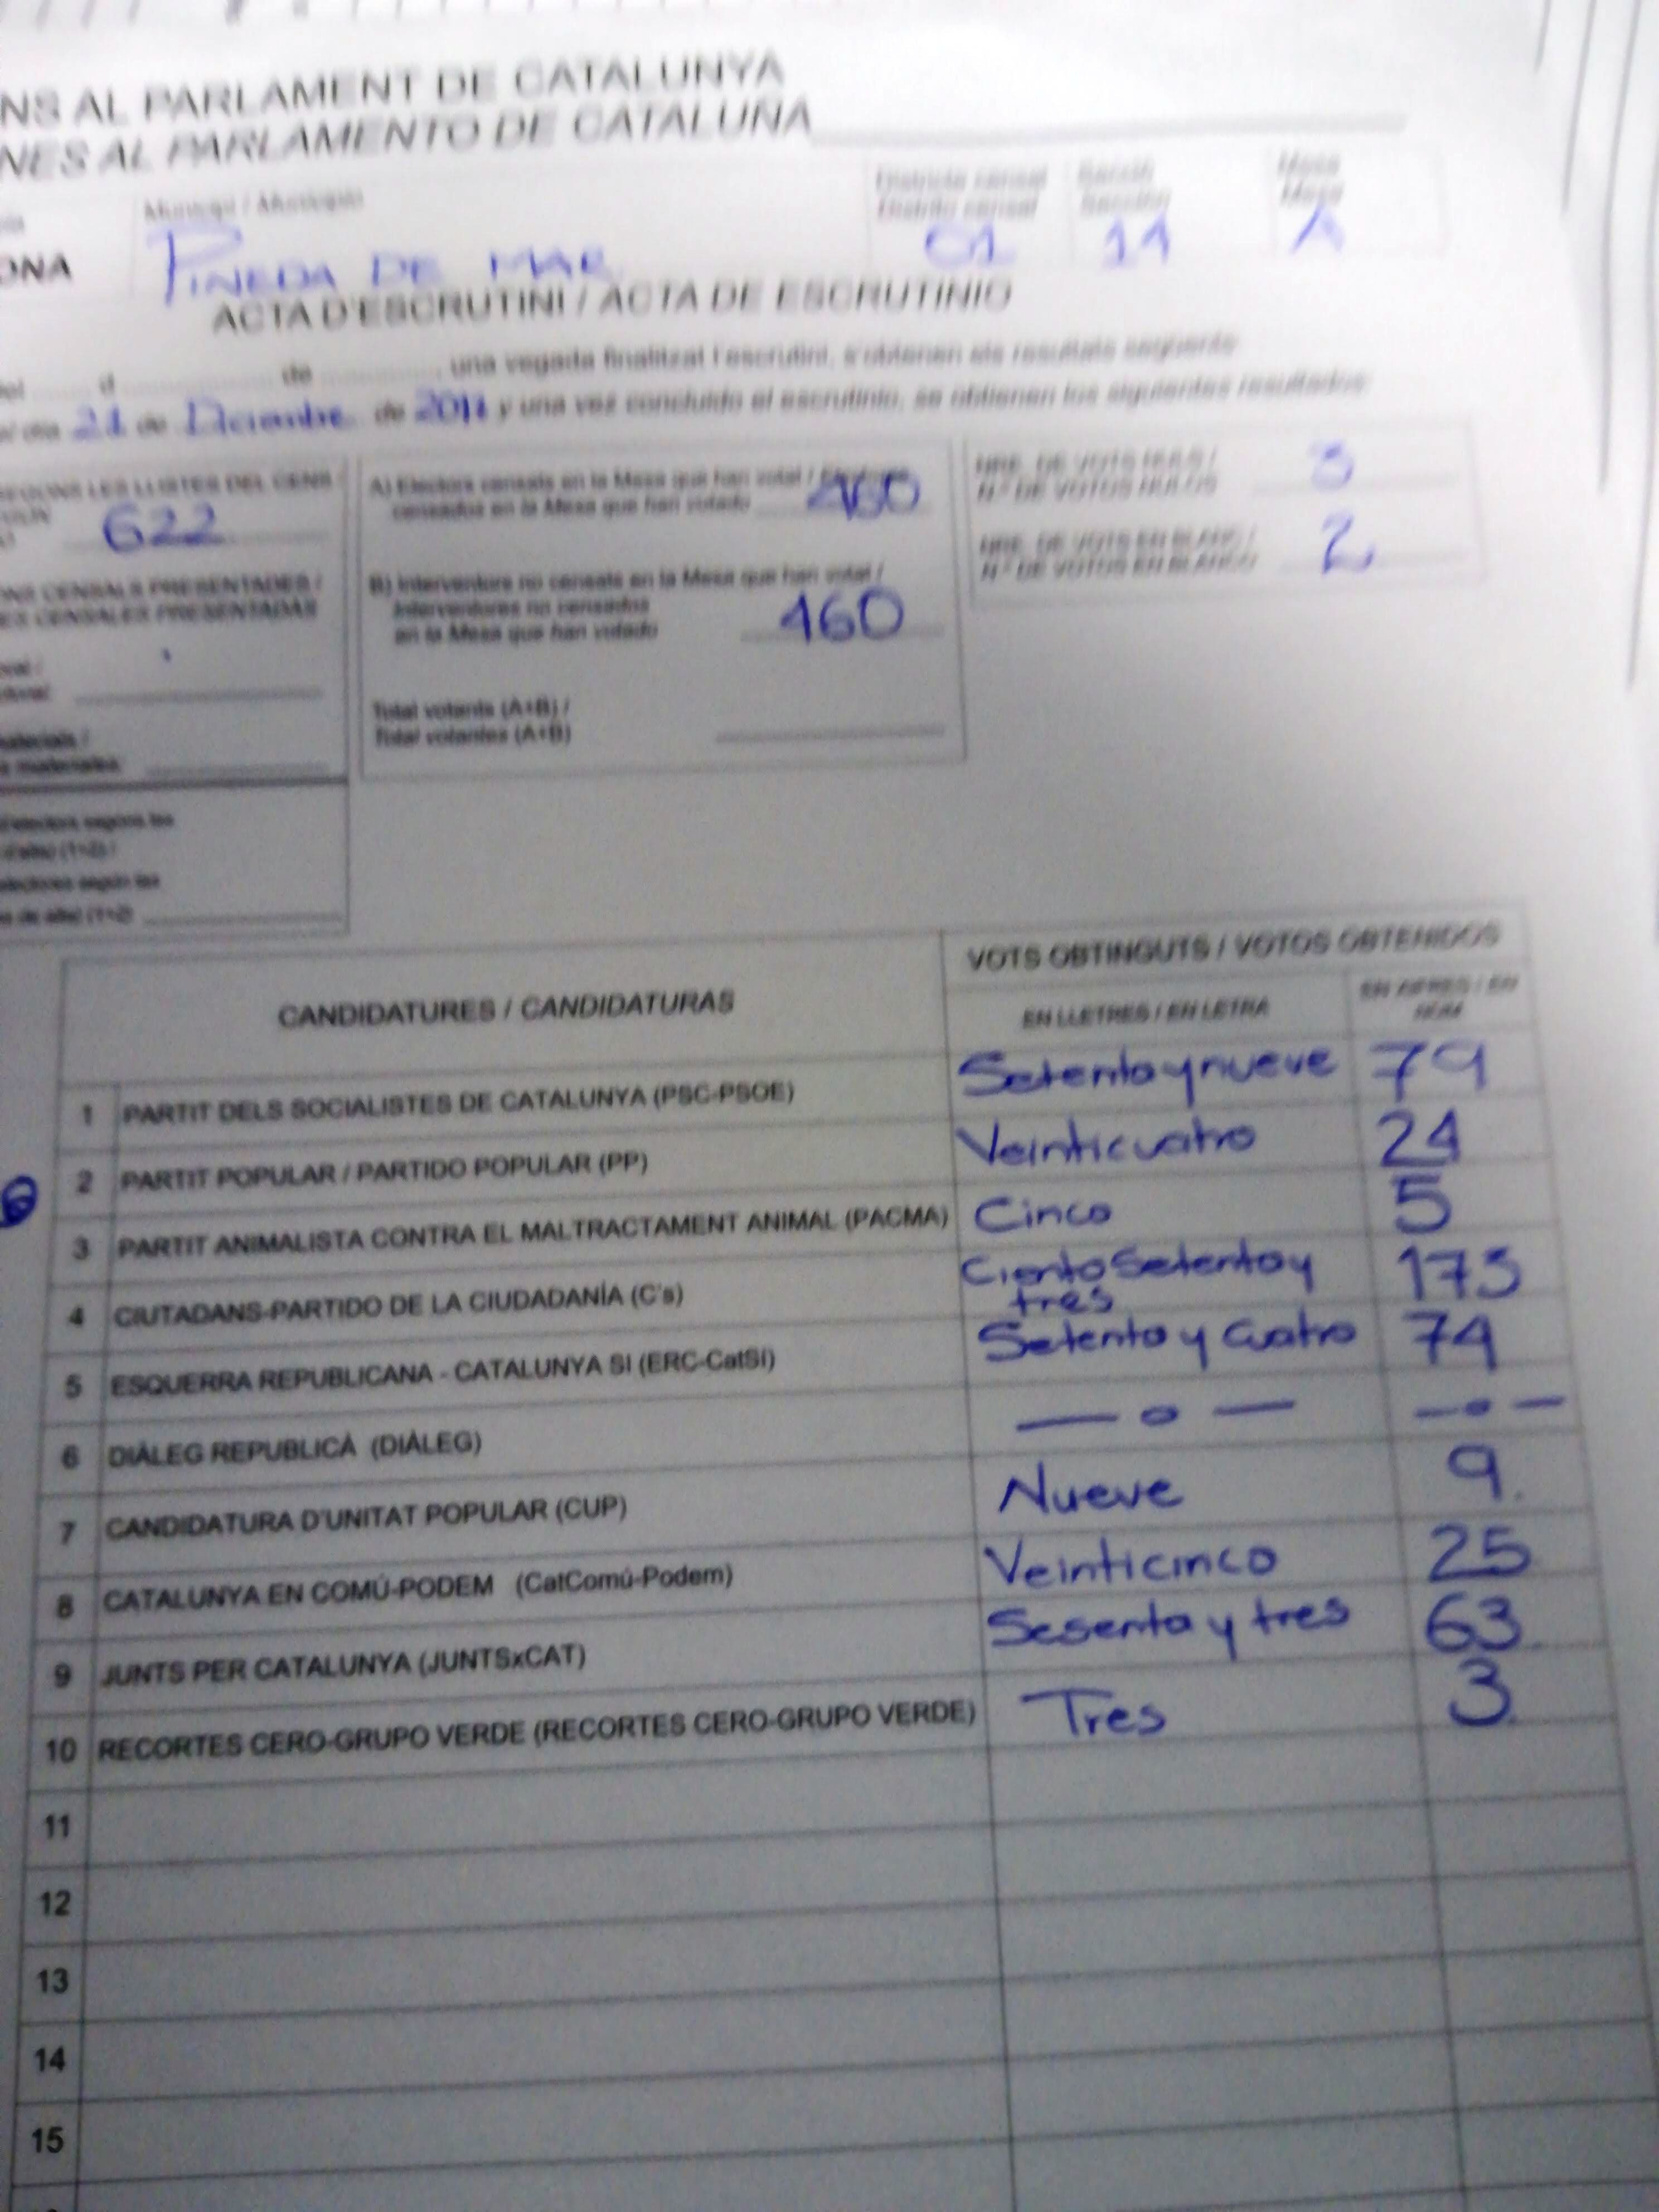 NS AL PARLAMENT DE CATALUNYA
NES AL PARLAMENTO DE CATALUÑA
Municipi / Municipio
Districte censal
Distrito censal
Secció
Sección
Mesa
Mesa
ONA
PINEDA DE MAR
01
11
A
ACTA D'ESCRUTINI / ACTA DE ESCRUTINIO
d de , una vegada finalitzat l'escrutini, s'obtenen els resultats següents
día 21 de Diciembre de y una vez concluido el escrutinio, se obtienen los siguientes resultados
SEGONS LES LLISTES DEL CENS
622
A) Electors censats en la Mesa que han votat /
censados en la Mesa que han votado 460
NRE. DE VOTS NULS /
N.º DE VOTOS NULOS 3
NRE. DE VOTS EN BLANC /
N.º DE VOTOS EN BLANCO 2
ONS CENSALS PRESENTADES /
ES CENSALES PRESENTADAS
B) Interventors no censats en la Mesa que han votat /
Interventores no censados
en la Mesa que han votado 460
Total votants (A+B) /
Total votantes (A+B)
materials /
materiales
electors segons les
d'alsò (1+2) /
electores según las
CANDIDATURES / CANDIDATURAS
VOTS OBTINGUTS / VOTOS OBTENIDOS
EN LLETRES / EN LETRA
EN XIFRES / EN
NÚM
1 PARTIT DELS SOCIALISTES DE CATALUNYA (PSC-PSOE) Setenta y nueve 79
2 PARTIT POPULAR / PARTIDO POPULAR (PP) Veinticuatro 24
3 PARTIT ANIMALISTA CONTRA EL MALTRACTAMENT ANIMAL (PACMA) Cinco 5
4 CIUTADANS-PARTIDO DE LA CIUDADANÍA (C's) Ciento Setenta y tres 173
5 ESQUERRA REPUBLICANA - CATALUNYA SÍ (ERC-CatSí) Setenta y cuatro 74
6 DIÀLEG REPUBLICÀ (DIÀLEG) — 0 — — 0 —
7 CANDIDATURA D'UNITAT POPULAR (CUP) Nueve 9.
8 CATALUNYA EN COMÚ-PODEM (CatComú-Podem) Veinticinco 25
9 JUNTS PER CATALUNYA (JUNTSxCAT) Sesenta y tres 63.
10 RECORTES CERO-GRUPO VERDE (RECORTES CERO-GRUPO VERDE) Tres 3.
11
12
13
14
15